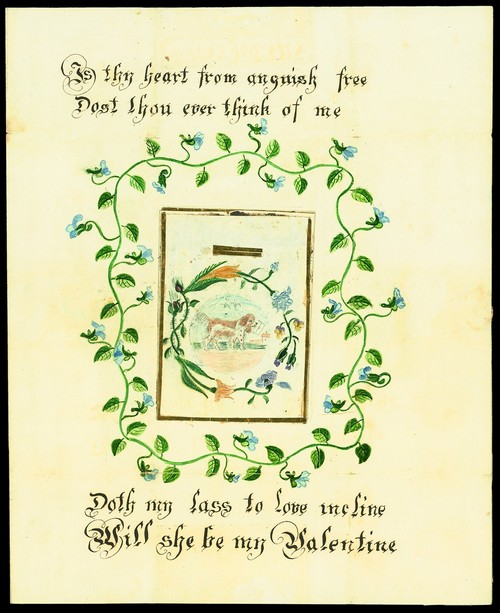 Is thy heart from anguish free
Dost thou ever think of me
Doth my lass to love incline
Will she be my Valentine